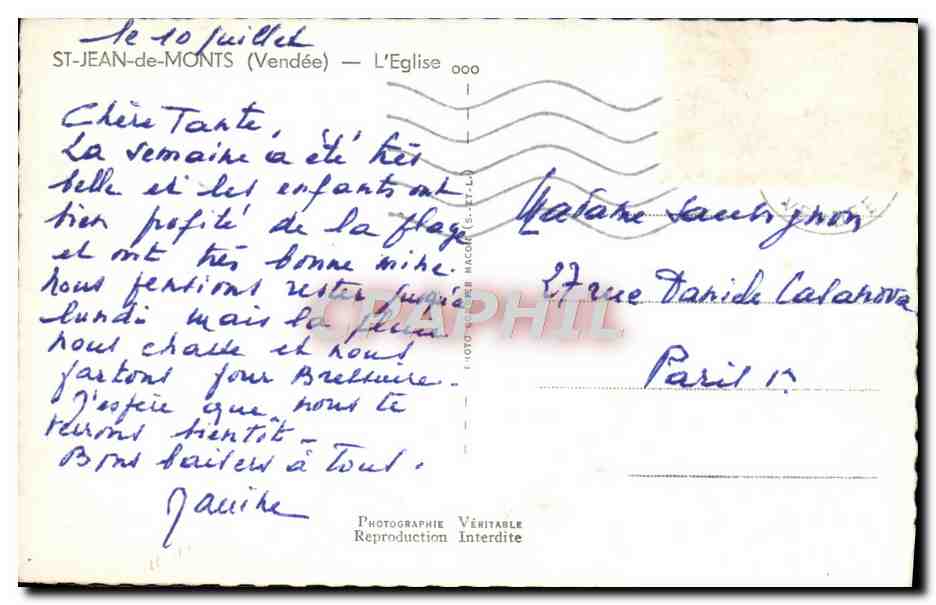 le 10 juillet
ST-JEAN-de-MONTS (Vendée) — L'Eglise
Chère Tante,
La semaine a été très
belle et les enfants ont
bien profité de la plage
et ont très bonne mine.
nous pensions rester jusqu'à
lundi mais la pluie
nous chasse et nous
partons pour Bressuire.
J'espère que nous te
verrons bientôt.
Bons baisers à tous.
Madame Sauvignon
27 rue Daniele Casanova
Paris 1r
PHOTO COMBIER MACON (S.-ET-L.)
CPAPHIL
PHOTOGRAPHIE VÉRITABLE
Reproduction Interdite